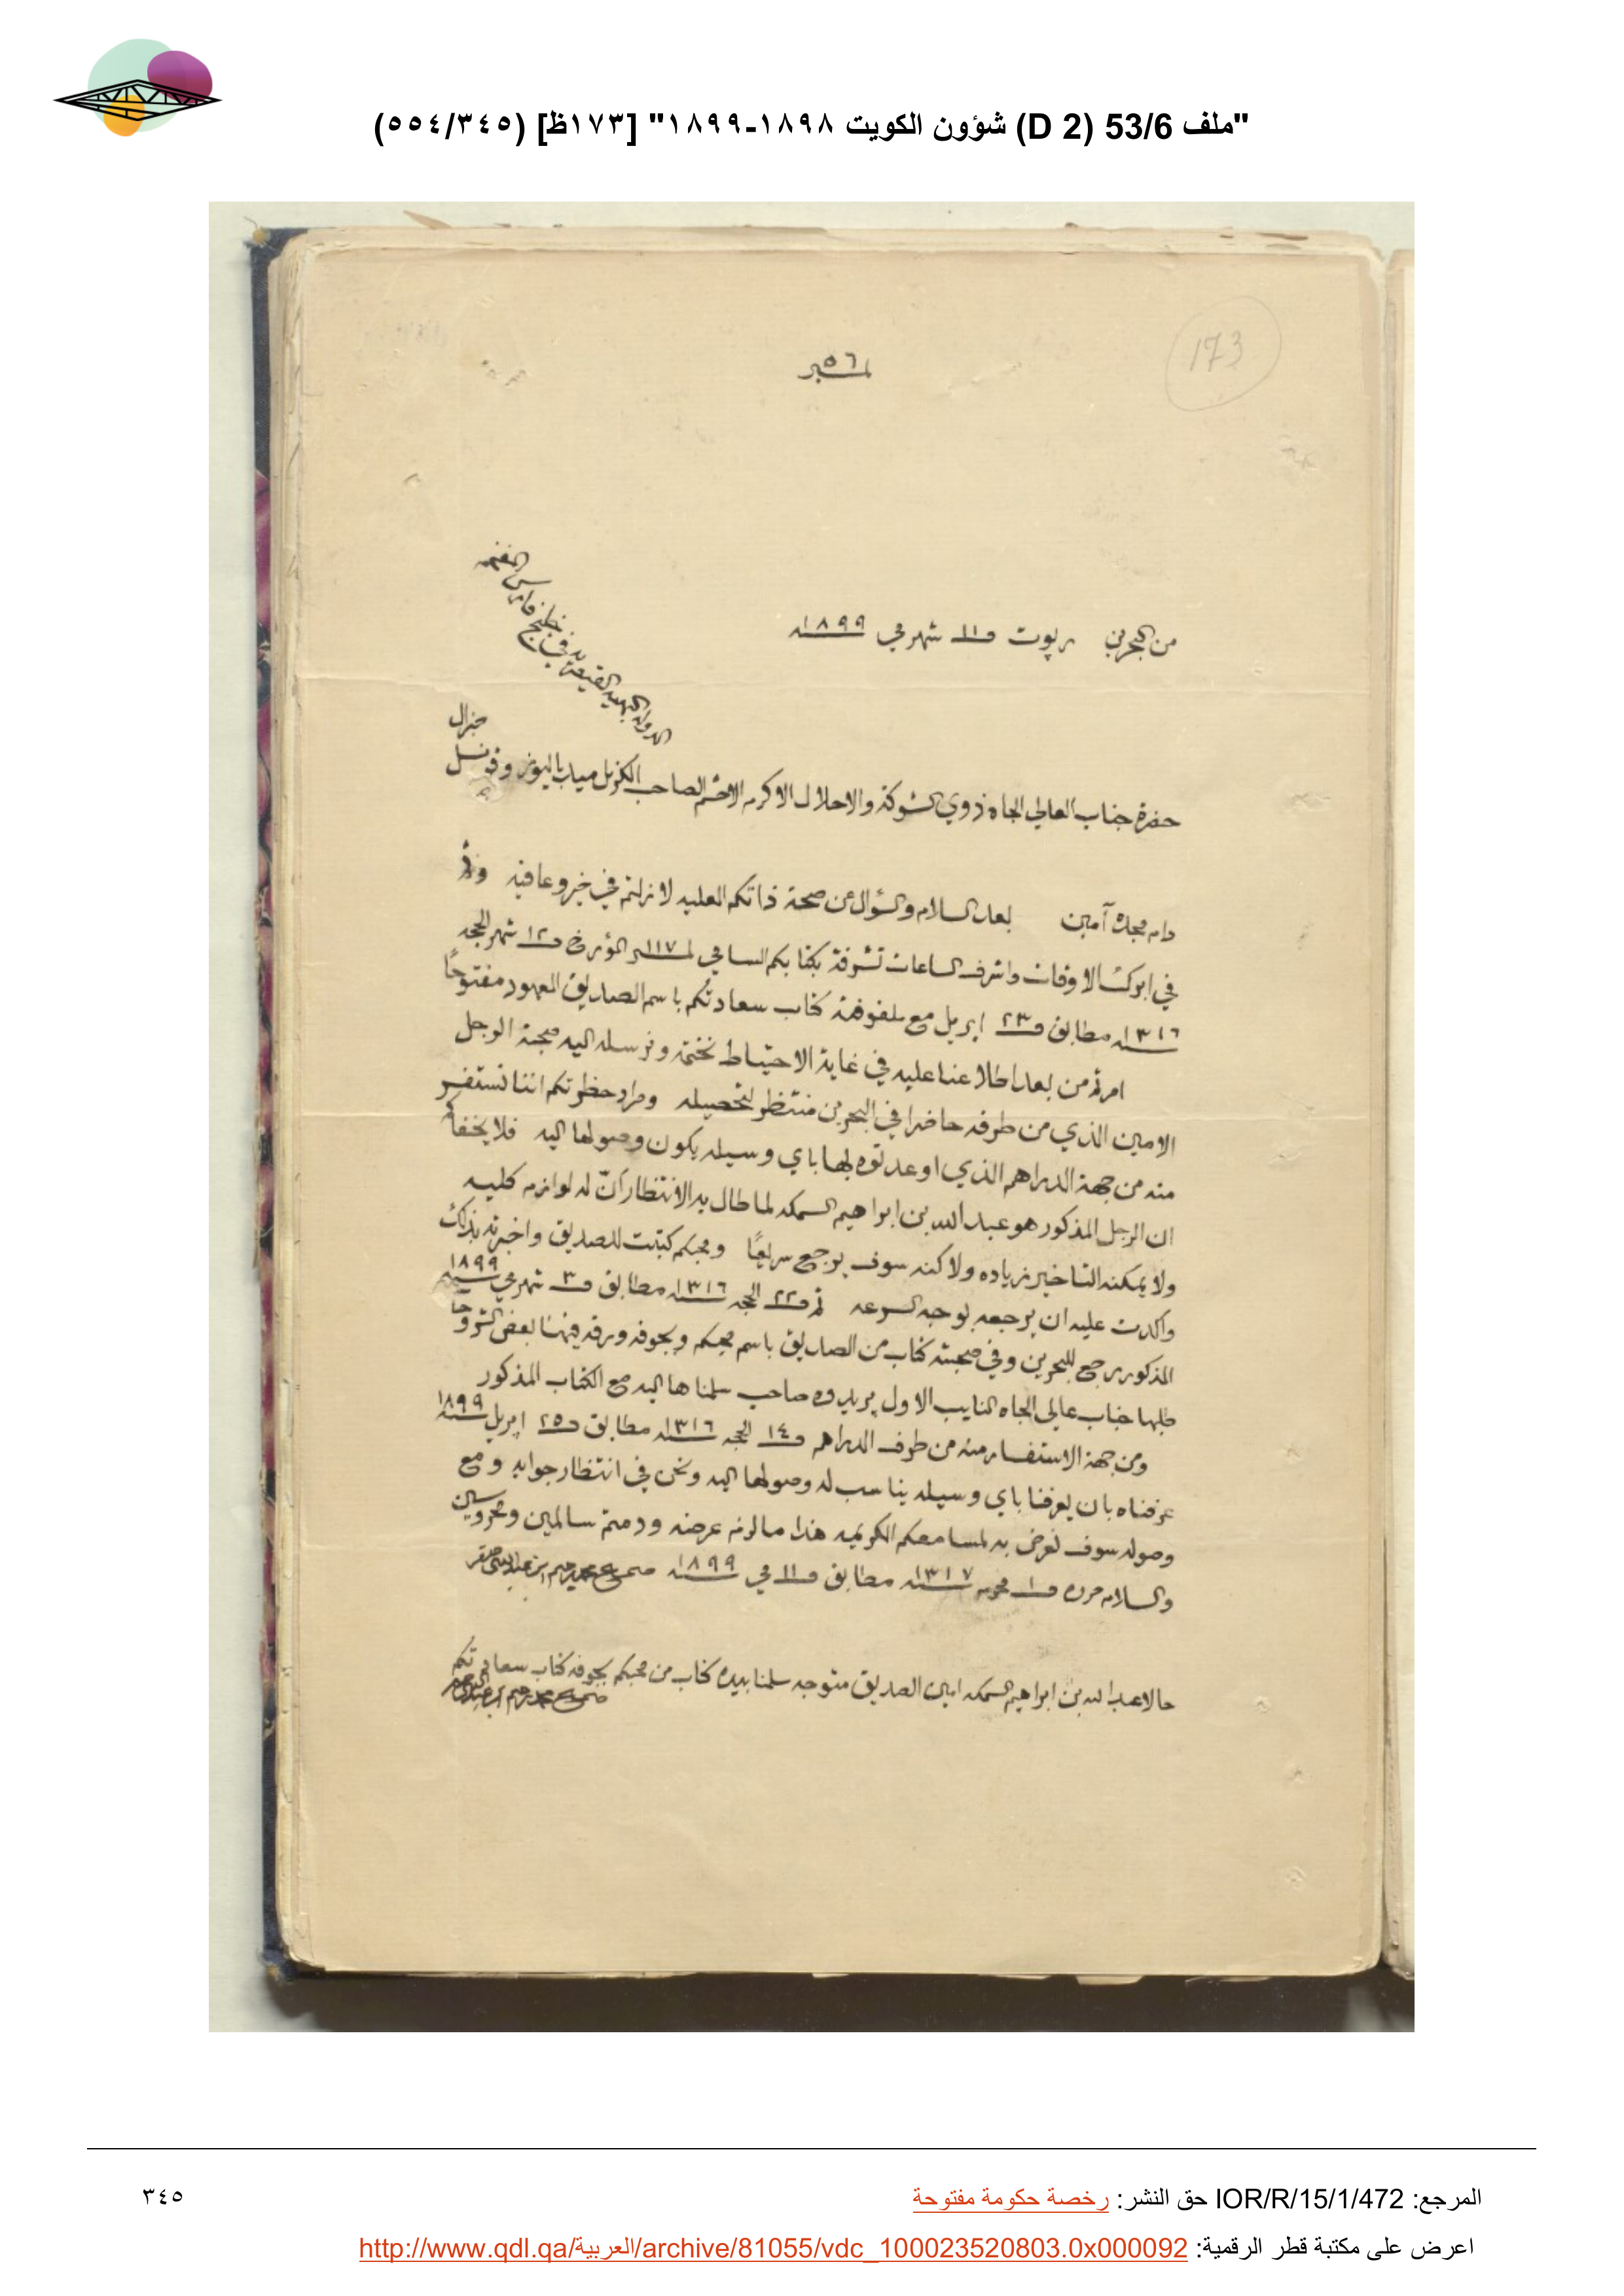 "ملف 53/6 (D 2) شؤون الكويت ١٨٩٨-١٨٩٩" [١٧٣ظ] (٥٥٤/٣٤٥)
173
نمبر ٥٦
من البحرين رپوت في ١١ شهر مي سنه ١٨٩٩
حضرة جناب العالي الجاه ذوي الشوكة والاجلال الاكرم الافخم الصاحب الكرنل ميد باليوز وقونسل جنرال
الدوله البهيه القيصريه في خليج فارس المفخم
دام مجده آمين بعد السلام والسؤال عن صحة ذاتكم العليه لا زلتم في خير وعافيه
في ابرك الاوقات واشرف الساعات تشرفة بكتابكم السامي نمبر ١١٧ المؤرخ في ١٢ شهر الحجه
سنه ١٣١٦ مطابق في ٢٣ ابريل مع ملفوفة كتاب سعادتكم باسم الصديق المعهود مفتوحًا
امرتم من بعد اطلاعنا عليه في غاية الاحتياط نختمه ونرسله اليه صحبة الرجل
الامين الذي من طرفه حاضرا في البحرين منتظر لتحصيله ومراد حظرتكم اننا نستفسر
منه من جهة الدراهم الذي اوعدتوه بها باي وسيله يكون وصولها اليه فلا يخفاكم
ان الرجل المذكور هو عبد الله بن ابراهيم السمكه لما طال به الانتظار انّ له لوازم كليه
ولا يمكنه التاخير زياده ولا كنه سوف يرجع سريعًا ومحبكم كتبت للصديق واخبرته بذلك
واكدت عليه ان يرجعه بوجه السرعه ثم في ٢٢ الحجه سنه ١٣١٦ مطابق في ٣ شهر مي سنه ١٨٩٩
المذكور رجع للبحرين وفي صحبته كتاب من الصديق باسم محبكم وبجوفه ورقه فيها بعض الشروحات
طلبها جناب عالي الجاه النايب الاول پريدوه صاحب سلمناها اليه مع الكتاب المذكور
ومن جهة الاستفسار منه من طرف الدراهم في ١٤ الحجه سنه ١٣١٦ مطابق في ٢٥ اپريل سنه ١٨٩٩
عرفناه بان يعرفنا باي وسيله يناسب له وصولها اليه ونحن في انتظار جوابه ومع
وصوله سوف نعرض به لمسامعكم الكريمه هذا ما لزم عرضه ودمتم سالمين ومحروسين
والسلام حرر في ١ محرم سنه ١٣١٧ مطابق في ١١ مي سنه ١٨٩٩ صحيح محمد رحيم بن عبد النبي صفر
حالا عبد الله بن ابراهيم السمكه امين الصديق متوجه سلمنا بيده كتاب من محبكم بجوفه كتاب سعادتكم
صحيح محمد رحيم بن عبد النبي صفر
المرجع: IOR/R/15/1/472 حق النشر: رخصة حكومة مفتوحة
٣٤٥
اعرض على مكتبة قطر الرقمية: http://www.qdl.qa/العربية/archive/81055/vdc_100023520803.0x000092